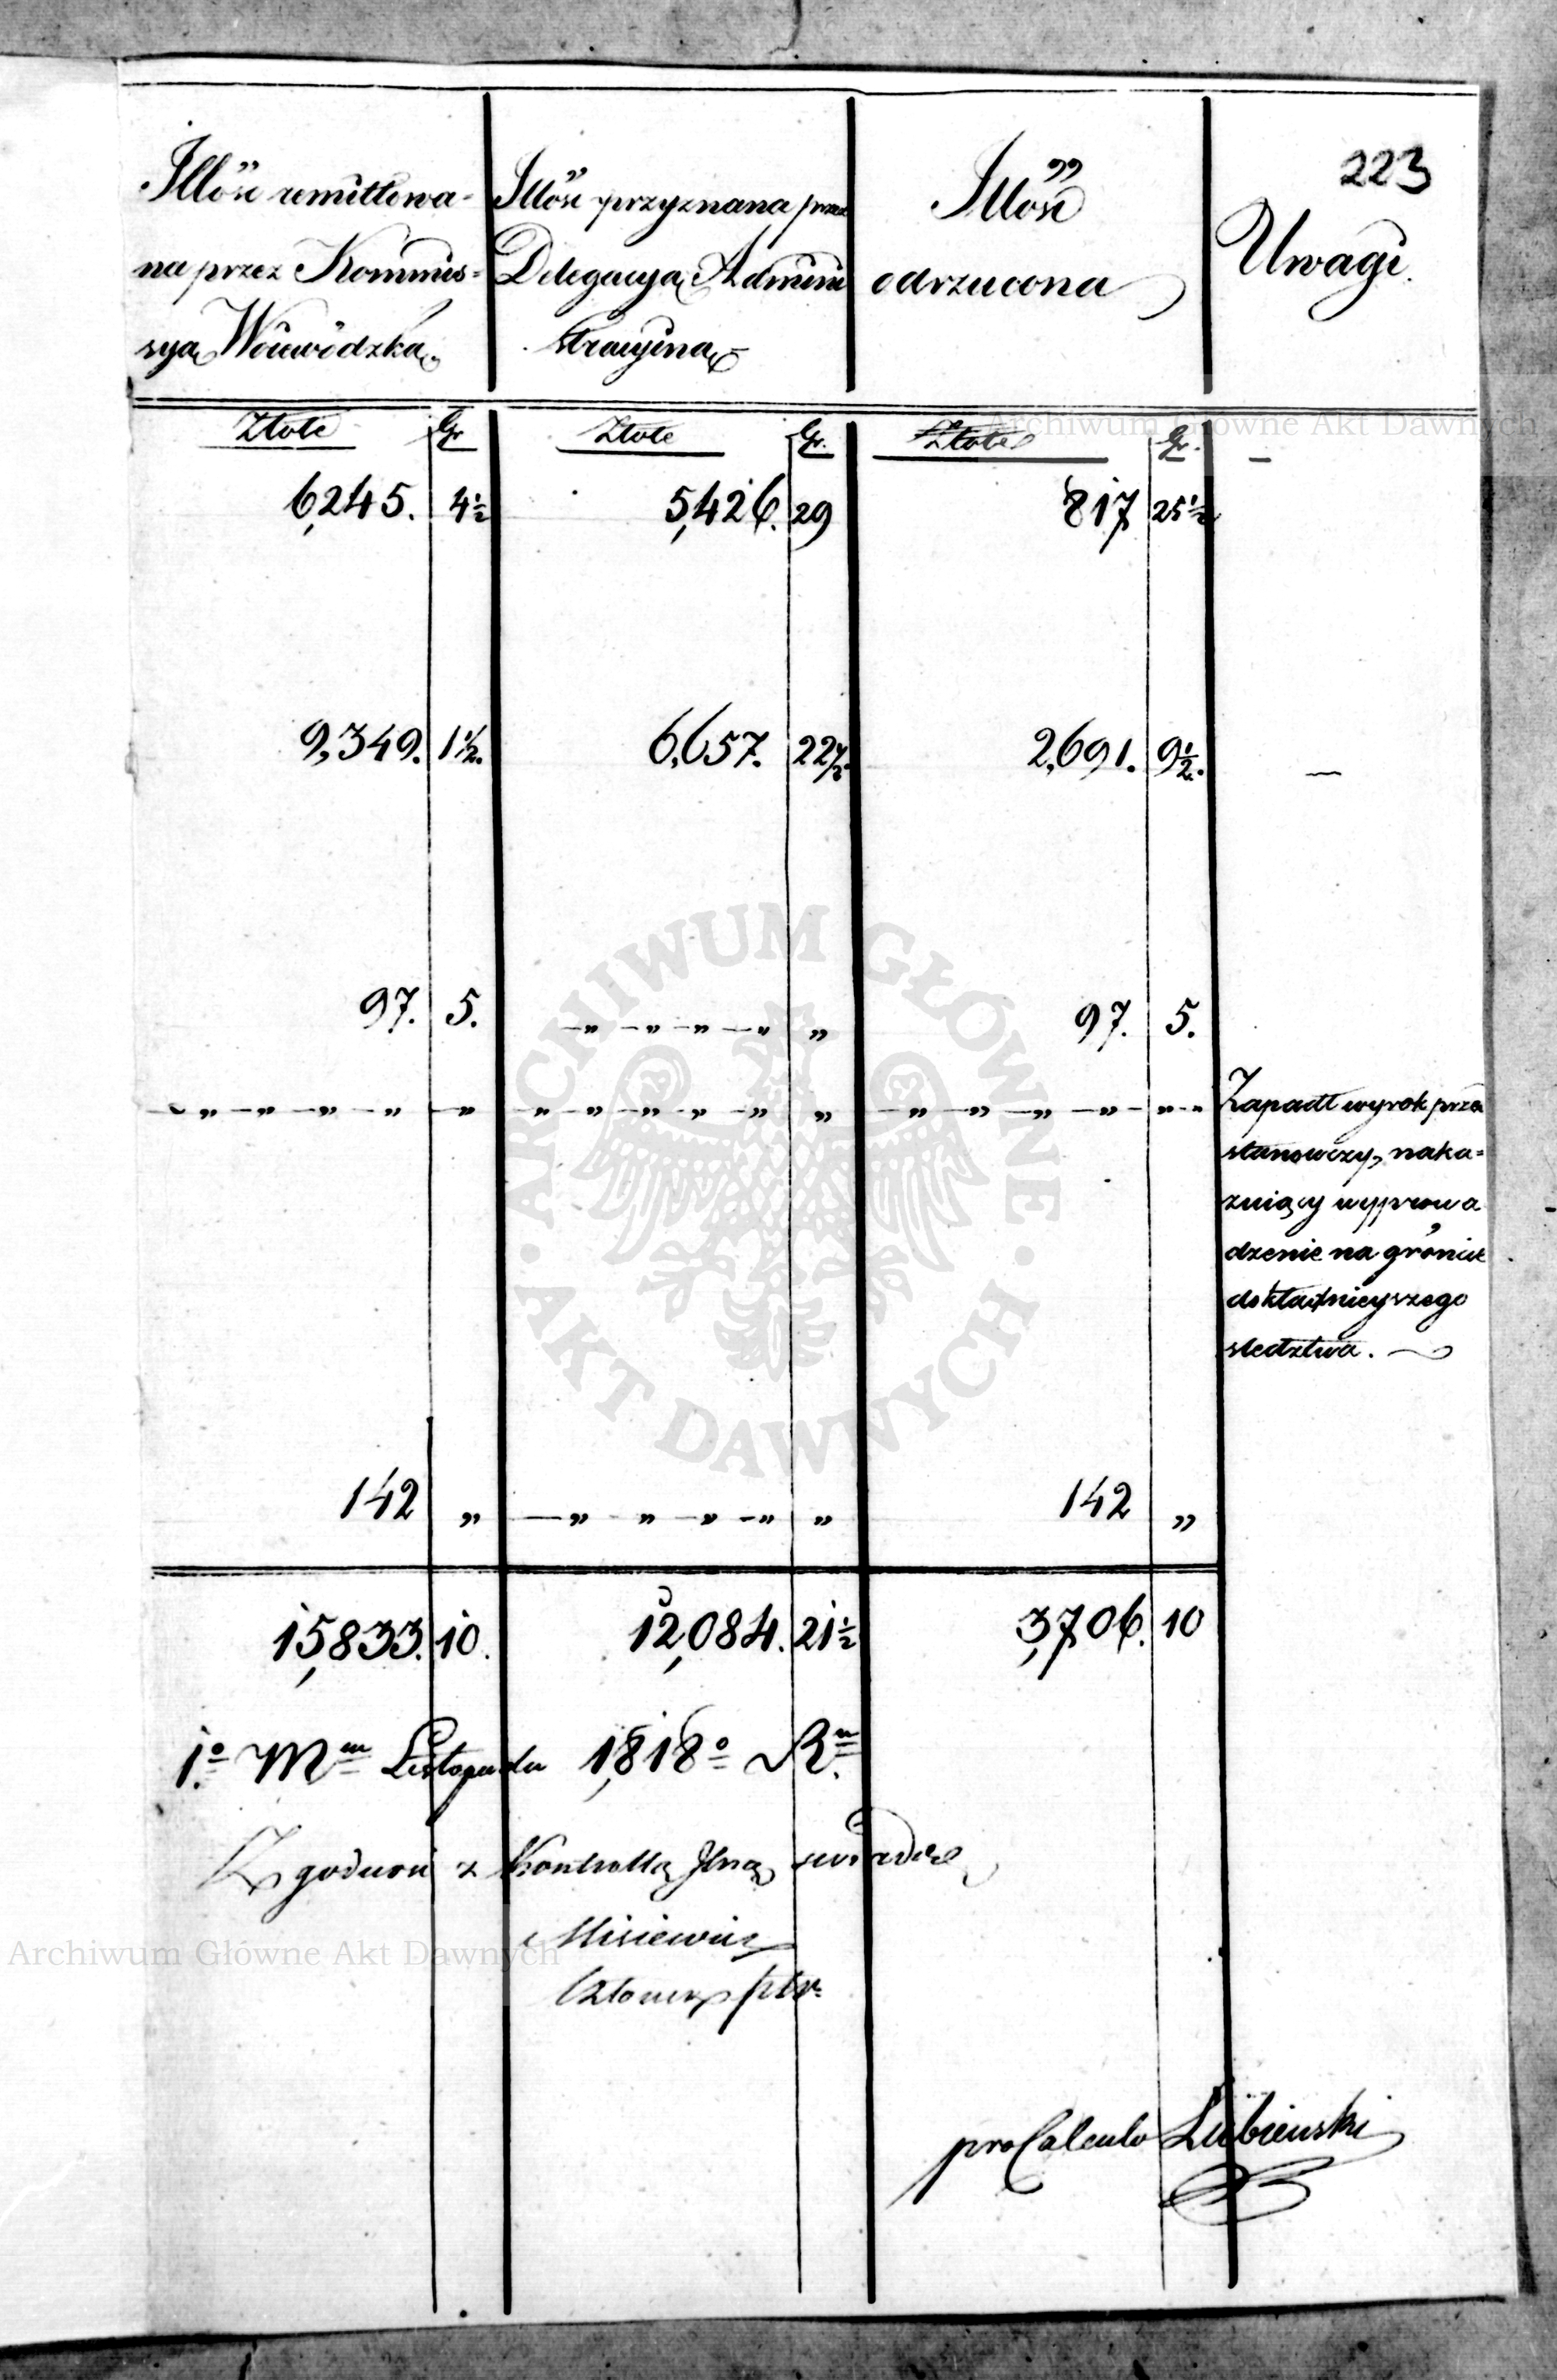 223
Illość remittowa-
na przez Kommis-
syą Woiewódzką.
Illość przyznana przez
Delegacyą Admini
stracyiną
Illość
odrzucona
Uwagi.
Złote Gr Złote Gr. Złote Gr.
6,245. 4½ 5,426. 29 817 25½ —
9,349. 1½. 6,657. 22½ 2,691. 9½. —
97. 5. —„—„—„—„ „ 97. 5.
—„—„—„—„—„—„—„—„—„—„ „ —„—„—„—„—„—
Zapadł wyrok przed
stanowczy, naka=
zuiący wyprowa
dzenie na gróncie
dokładnieyszego
sledztwa.
142 „ —„—„—„—„ „ 142 „
15,833. 10. 12,084. 21½ 3,706. 10
1º Mca Listopada 1,818º R.
Zgodność z Kontrollą świadczę
Misiewicz
Członek
pro Calculo Łubieński
Archiwum Główne Akt Dawnych
ARCHIWUM GŁÓWNE · AKT DAWNYCH ·
Archiwum Główne Akt Dawnych